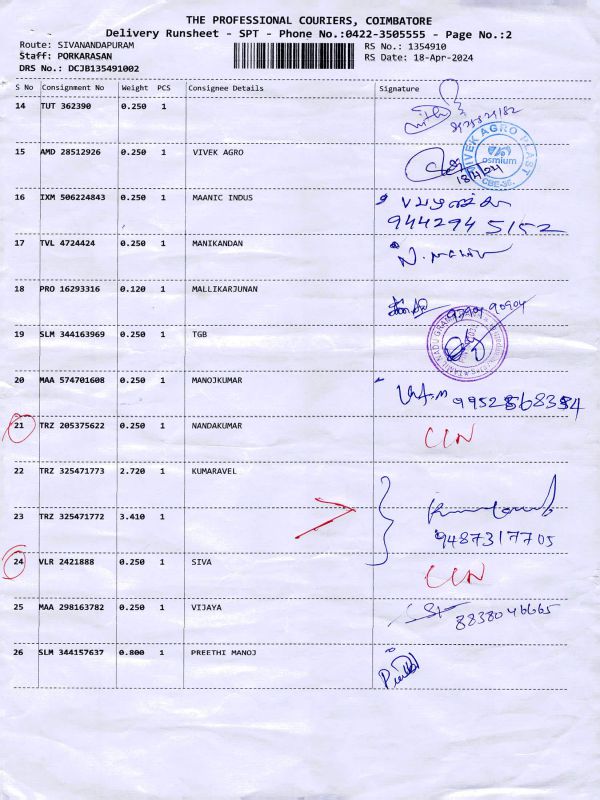 THE PROFESSIONAL COURIERS, COIMBATORE
Delivery Runsheet - SPT - Phone No.:0422-3505555 - Page No.:2
Route: SIVANANDAPURAM RS No.: 1354910
Staff: PORKARASAN RS Date: 18-Apr-2024
DRS No.: DCJB135491002
S No Consignment No Weight PCS Consignee Details Signature
14 TUT 362390 0.250 1
15 AMD 28512926 0.250 1 VIVEK AGRO
VIVEK AGRO PLAST
osmium
CBE-36.
18/4/24
16 IXM 506224843 0.250 1 MAANIC INDUS
9442945152
17 TVL 4724424 0.250 1 MANIKANDAN
18 PRO 16293316 0.120 1 MALLIKARJUNAN
19 SLM 344163969 0.250 1 TGB
20 MAA 574701608 0.250 1 MANOJKUMAR
21 TRZ 205375622 0.250 1 NANDAKUMAR
CLN
22 TRZ 325471773 2.720 1 KUMARAVEL
23 TRZ 325471772 3.410 1
9487317705
24 VLR 2421888 0.250 1 SIVA
CLN
25 MAA 298163782 0.250 1 VIJAYA
8838046665
26 SLM 344157637 0.800 1 PREETHI MANOJ